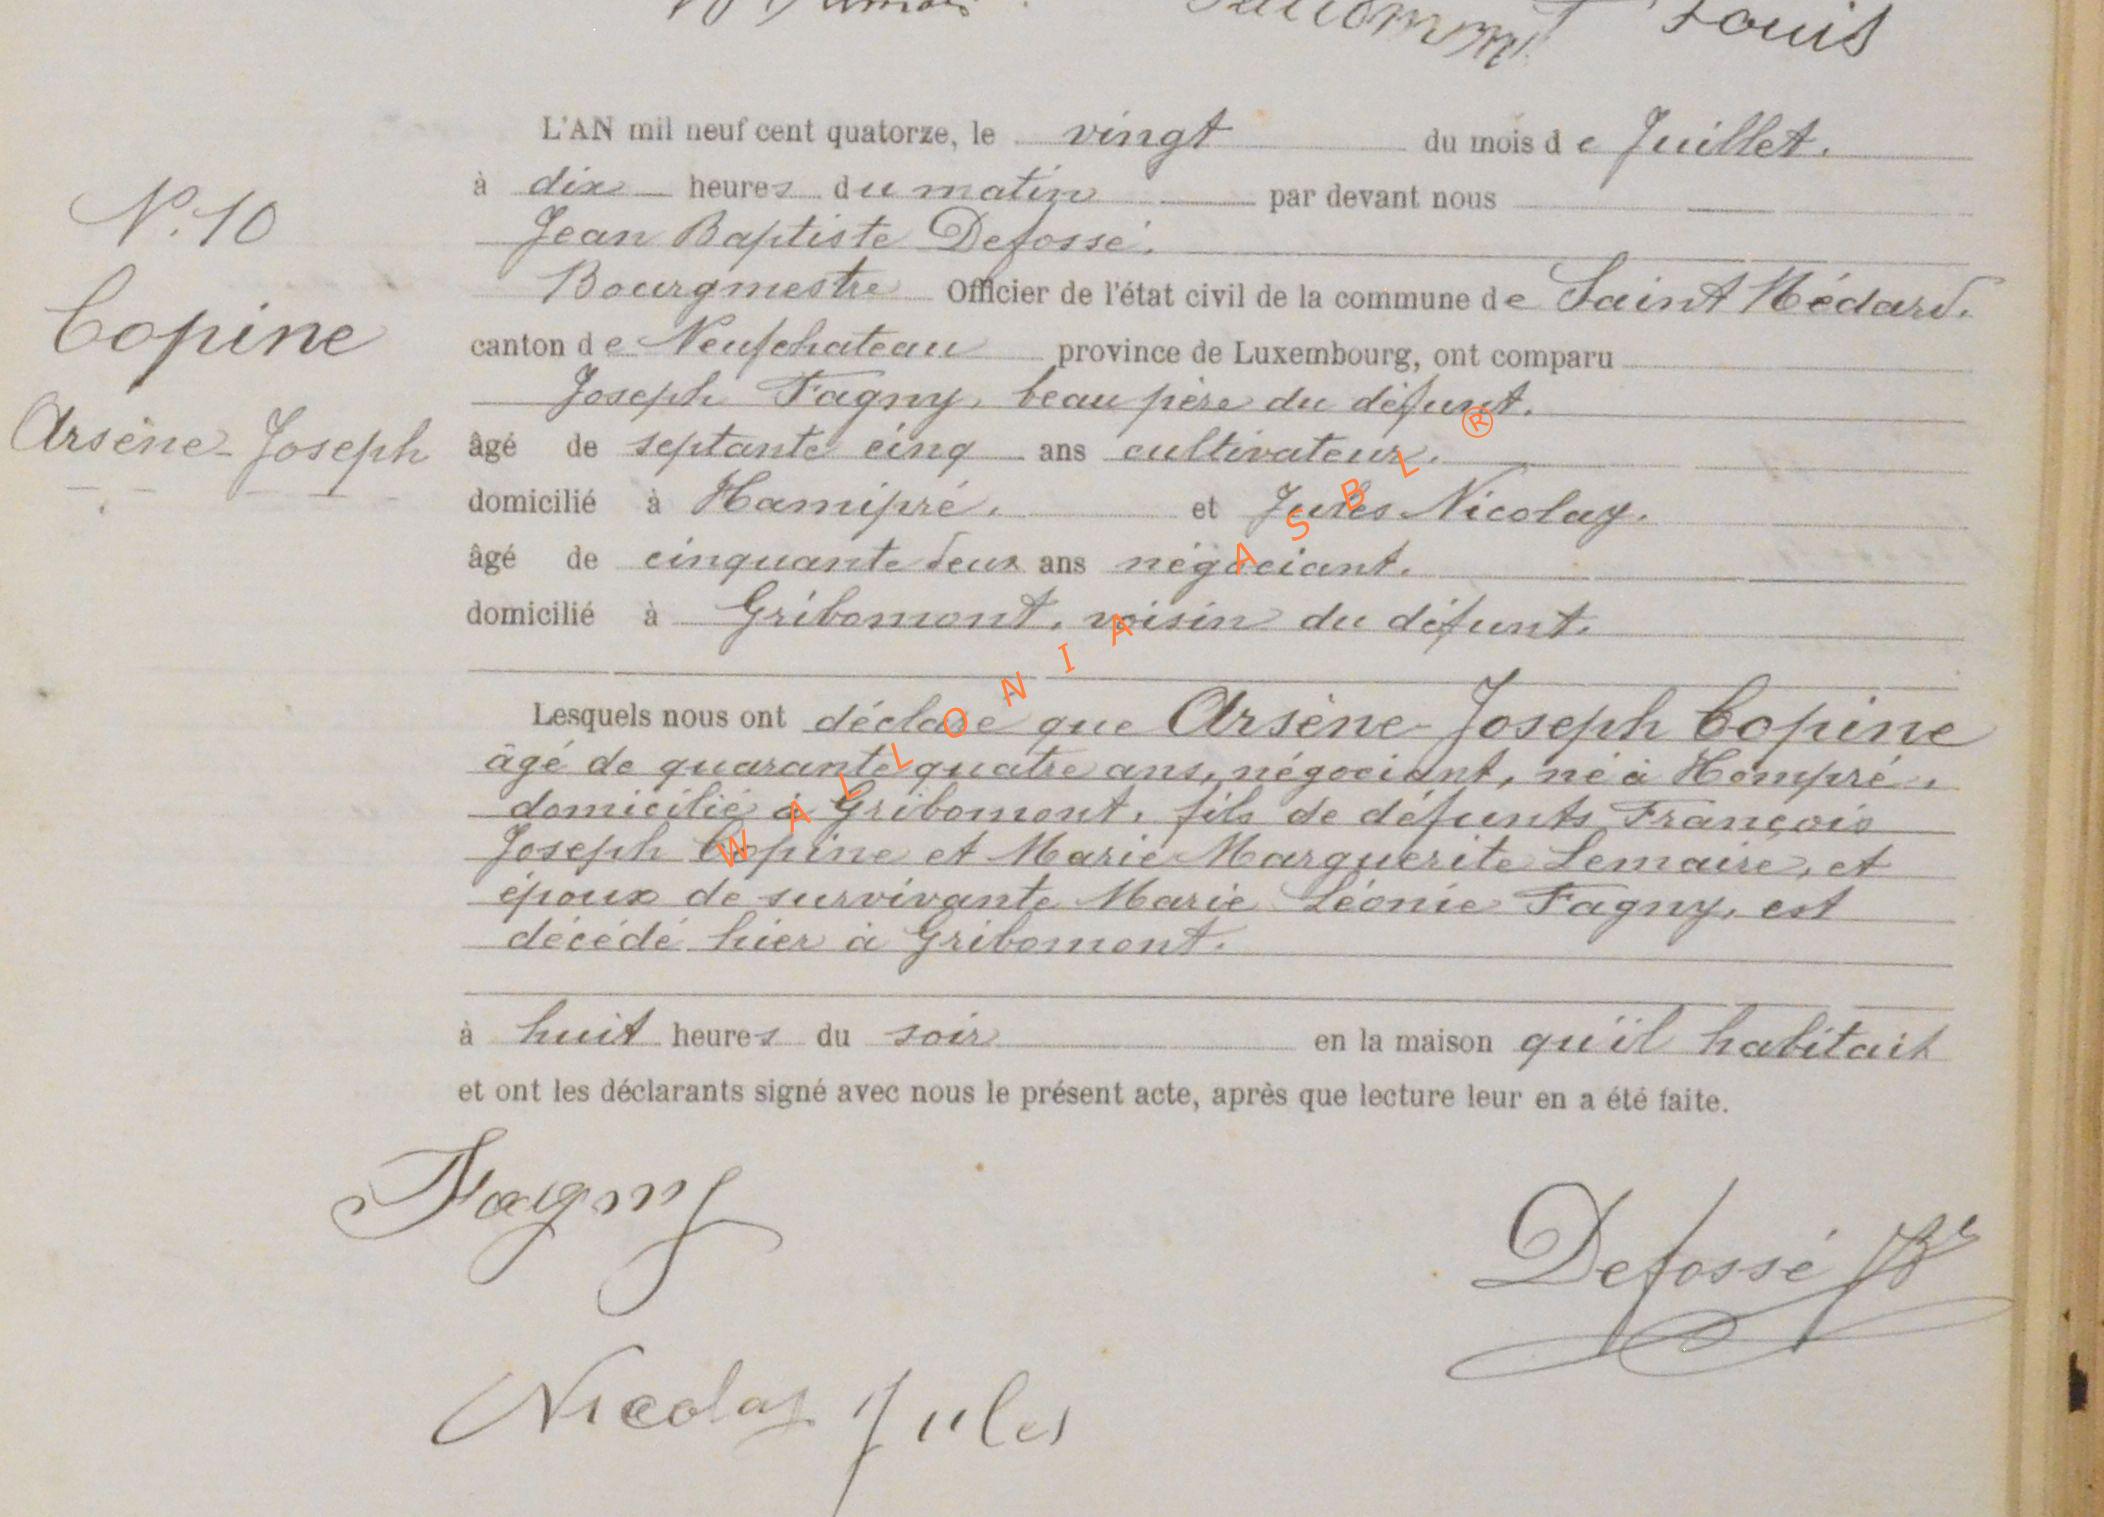 Louis
L'AN mil neuf cent quatorze, le vingt du mois de Juillet.
à dix heures du matin par devant nous
Jean Baptiste Defossé.
Bourgmestre Officier de l'état civil de la commune de Saint Médard.
canton de Neufchateau province de Luxembourg, ont comparu
Joseph Fagny, beau père du défunt.
âgé de septante cinq ans cultivateur.
domicilié à Hamipré. et Jules Nicolay.
âgé de cinquante deux ans négociant.
domicilié à Gribomont, voisin du défunt.
N.° 10
Copine
Arsène-Joseph
Lesquels nous ont déclaré que Arsène-Joseph Copine
âgé de quarante quatre ans, négociant, né à Hompré,
domicilié à Gribomont, fils de défunts François
Joseph Copine et Marie Marguerite Lemaire, et
époux de survivante Marie Léonie Fagny, est
décédé hier à Gribomont.
à huit heures du soir en la maison qu'il habitait
et ont les déclarants signé avec nous le présent acte, après que lecture leur en a été faite.
Fagny
Defossé JB
Nicolay Jules
WALLONIA ASBL ®